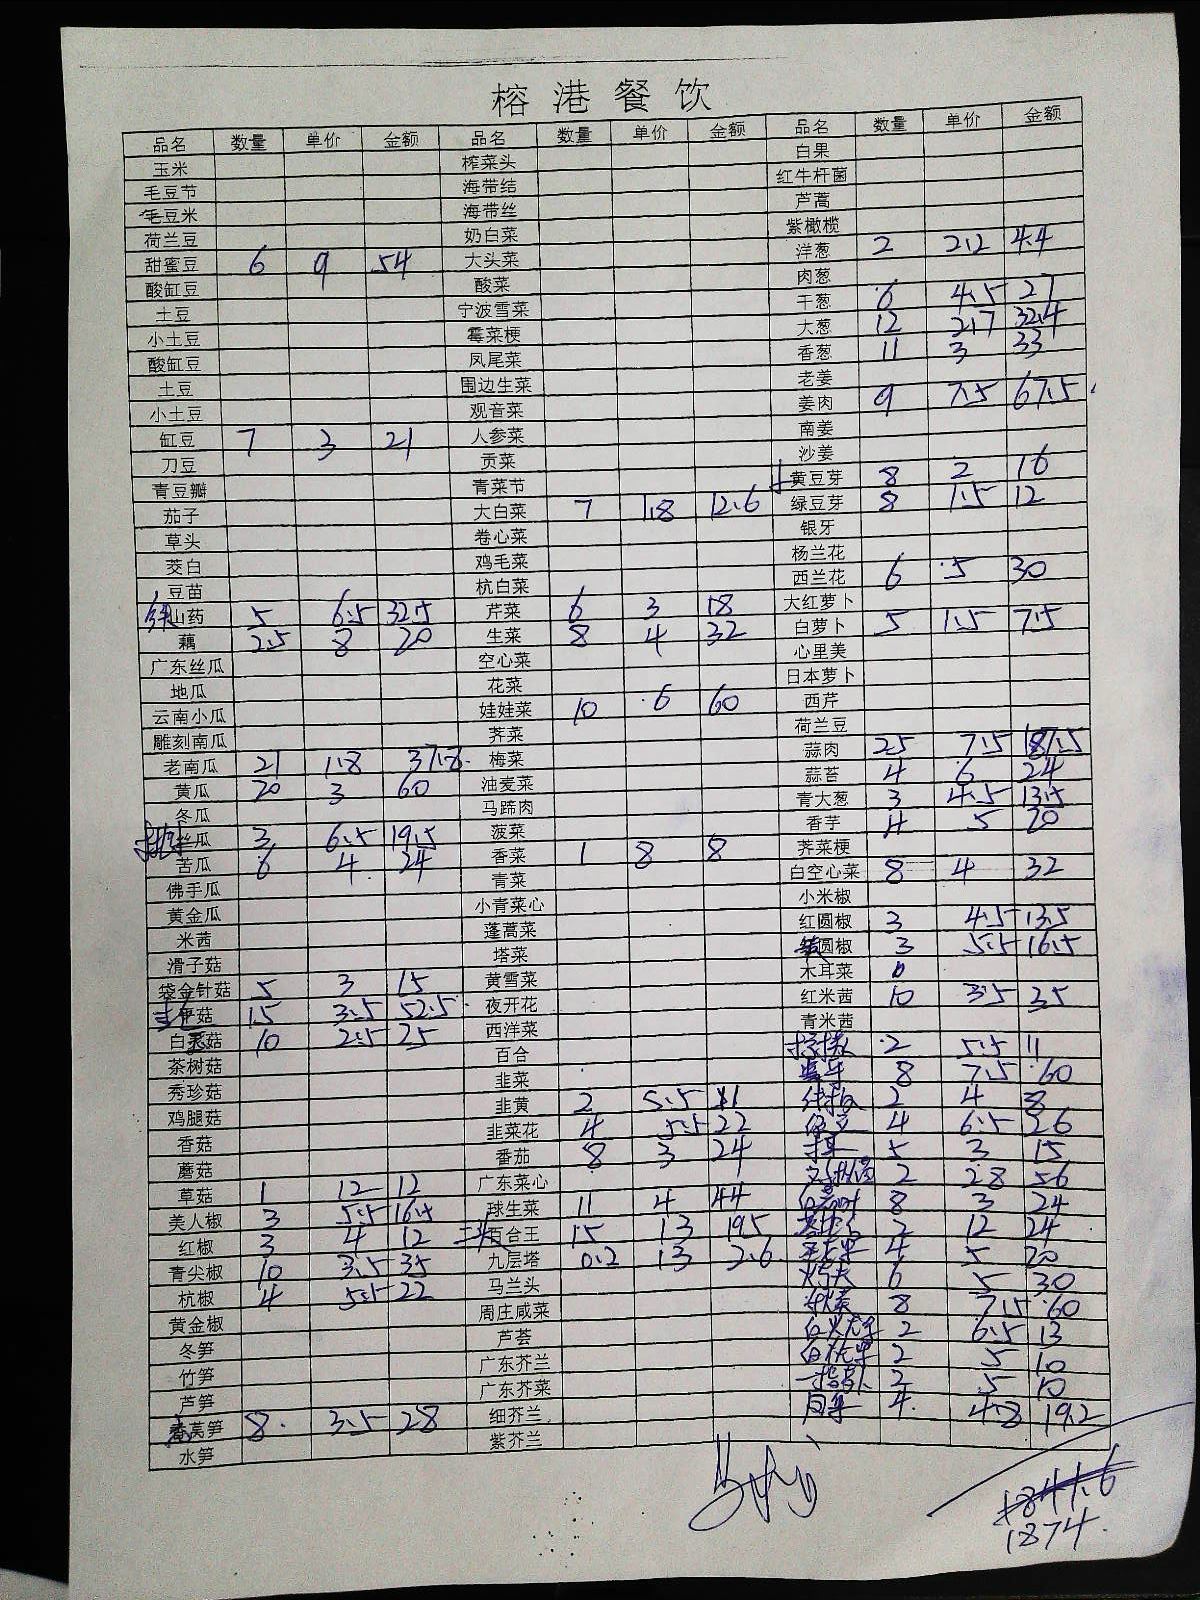 榕港餐饮
品名 数量 单价 金额 品名 数量 单价 金额 品名 数量 单价 金额
玉米 榨菜头 白果
毛豆节 海带结 红牛杆菌
毛豆米 海带丝 芦蒿
荷兰豆 奶白菜 紫橄榄
甜蜜豆 6 9 54 大头菜 洋葱 2 2.2 4.4
酸缸豆 酸菜 肉葱
土豆 宁波雪菜 干葱 6 4.5 27
小土豆 霉菜梗 大葱 12 2.7 32.4
酸缸豆 凤尾菜 香葱 11 3 33
土豆 围边生菜 老姜
小土豆 观音菜 姜肉 9 7.5 67.5
缸豆 7 3 21 人参菜 南姜
刀豆 贡菜 沙姜
青豆瓣 青菜节 黄豆芽 8 2 16
茄子 大白菜 7 1.8 12.6 绿豆芽 8 1.5 12
草头 卷心菜 银牙
茭白 鸡毛菜 杨兰花
豆苗 杭白菜 西兰花 6 5 30
山药 5 6.5 32.5 芹菜 6 3 18 大红萝卜
藕 2.5 8 20 生菜 8 4 32 白萝卜 5 1.5 7.5
广东丝瓜 空心菜 心里美
地瓜 花菜 日本萝卜
云南小瓜 娃娃菜 10 6 60 西芹
雕刻南瓜 荠菜 荷兰豆
老南瓜 21 1.8 37.8 梅菜 蒜肉 25 7.5 187.5
黄瓜 20 3 60 油麦菜 蒜苔 4 6 24
冬瓜 马蹄肉 青大葱 3 4.5 13.5
丝瓜 3 6.5 19.5 菠菜 香芋 4 5 20
苦瓜 6 4 24 香菜 1 8 8 荠菜梗
佛手瓜 青菜 白空心菜 8 4 32
黄金瓜 小青菜心 小米椒
米茜 蓬蒿菜 红圆椒 3 4.5 13.5
滑子菇 塔菜 圆椒 3 5.5 16.5
袋金针菇 5 3 15 黄雪菜 木耳菜
菇 15 3.5 52.5 夜开花 红米茜 10 3.5 35
白灵菇 10 2.5 25 西洋菜 青米茜
茶树菇 百合 2 5.5 11
秀珍菇 韭菜 8 7.5 60
鸡腿菇 韭黄 2 5.5 11 2 4 8
香菇 韭菜花 4 5.5 22 4 6.5 26
蘑菇 番茄 8 3 24 5 3 15
草菇 1 12 12 广东菜心 2 2.8 5.6
美人椒 3 5.5 16.5 球生菜 11 4 44 8 3 24
红椒 3 4 12 百合王 15 13 195 2 12 24
青尖椒 10 3.5 35 九层塔 0.2 13 2.6 4 5 20
杭椒 4 5.5 22 马兰头 6 5 30
黄金椒 周庄咸菜 8 7.5 60
冬笋 芦荟 2 6.5 13
竹笋 广东芥兰 2 5 10
芦笋 广东芥菜 2 5 10
莴笋 8 3.5 28 细芥兰 4 4.8 19.2
水笋 紫芥兰
1841.6
1874